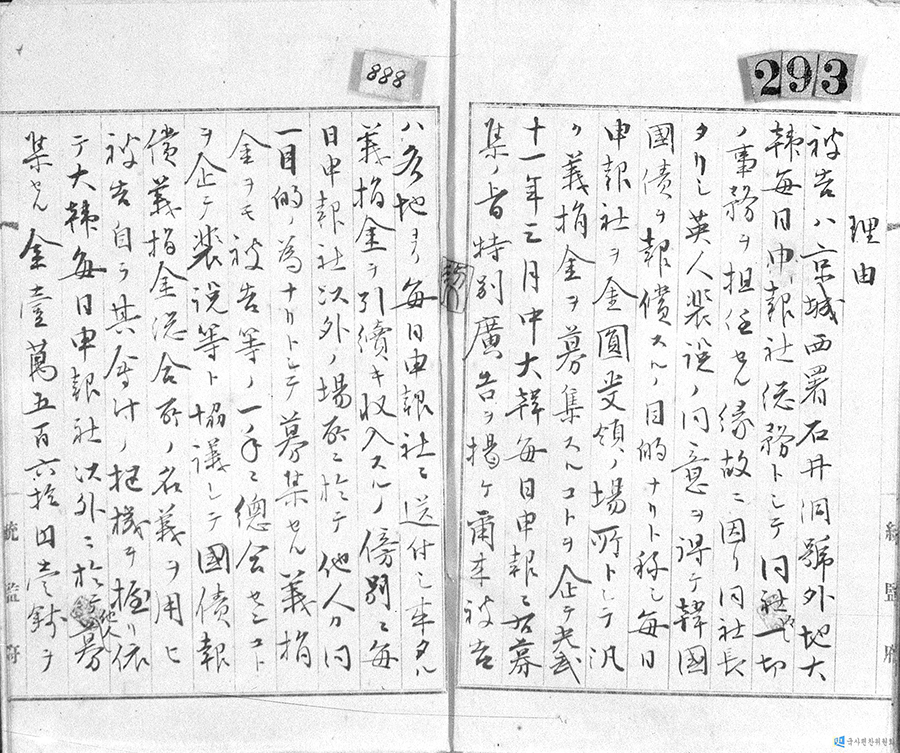 293
理由
被告ハ京城西署石井洞號外地大
韓毎日申報社総務トシテ同社一切
ノ事務ヲ担任セル縁故ニ因リ同社長
タリシ英人裴説ノ同意ヲ得テ韓國
國債ヲ報償スルノ目的ナリト称シ毎日
申報社ヲ金圓受領ノ場所トシテ汎
ク義捐金ヲ募集スルコトヲ企テ光武
十一年三月中大韓毎日申報ニ右募
集ノ旨特別廣告ヲ揚ケ爾来被告
888
ハ各地ヨリ毎日申報社ニ送付シ来タル
義捐金ヲ引續キ収入スルノ傍別ニ毎
日申報社以外ノ場所ニ於テ他人カ同
一目的ノ為ナリトシテ募集セル義捐
金ヲモ被告等ノ一手ニ總合センコト
ヲ企テ裴説等ト協議シテ國債報
償義捐金総合所ノ名義ヲ用ヒ
被告自ラ其會計ノ枢機ヲ握リ依
テ大韓毎日申報社以外ニ於テ他人ノ募
集セル金壹萬五百六拾円壹銭ヲ
統監府
統監府
국사편찬위원회